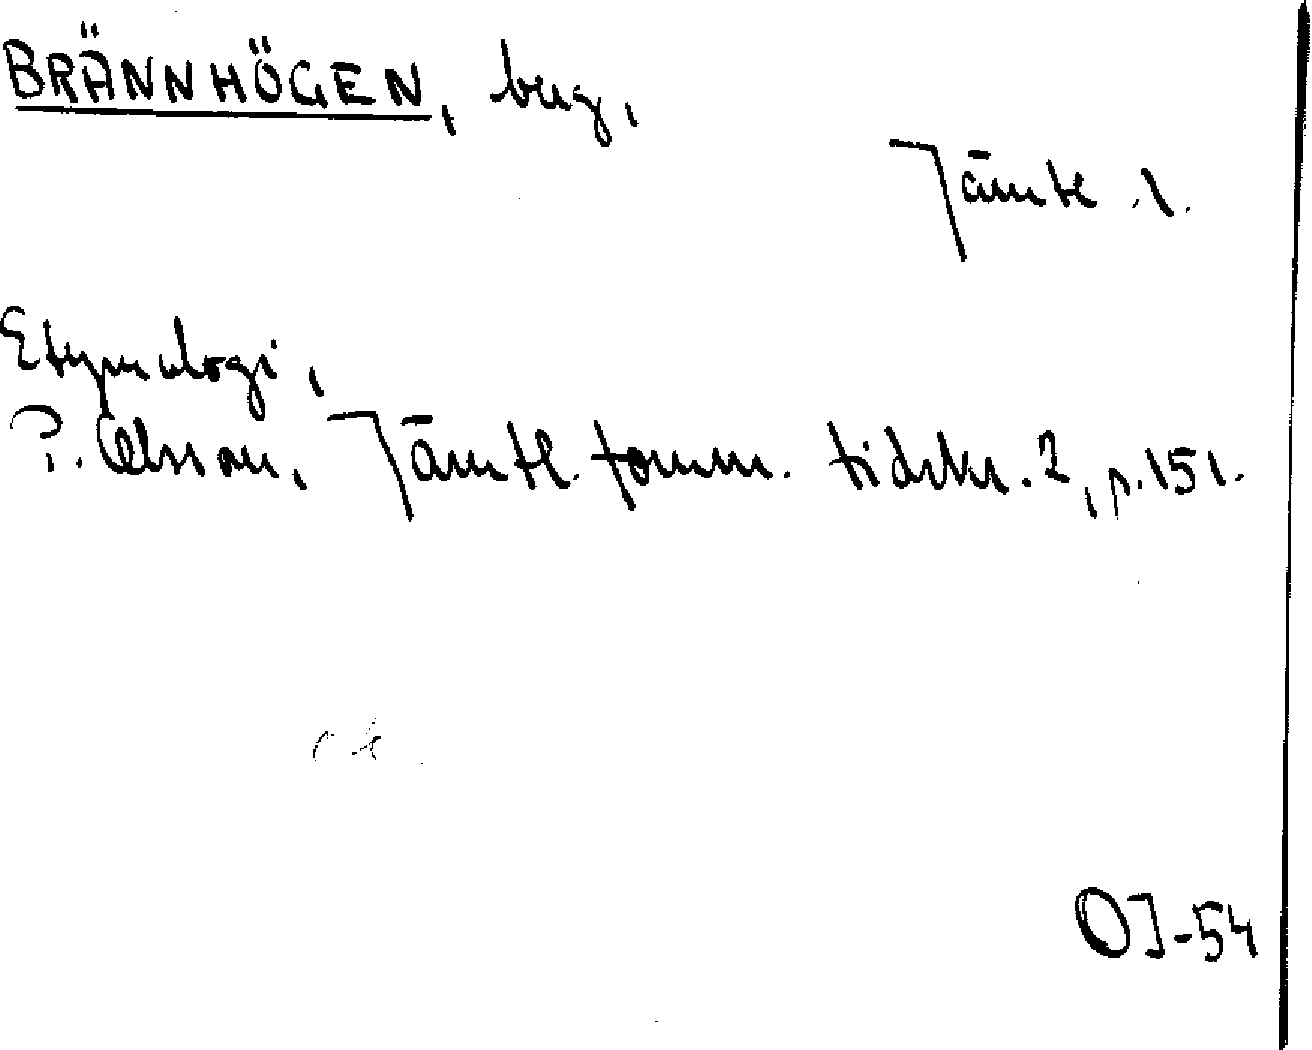 BRÄNNHÖGEN, berg,
Jämtl.
Etymologi,
P. Olsson, Jämtl. fornm. tidskr. 2, p. 151.
OJ-54